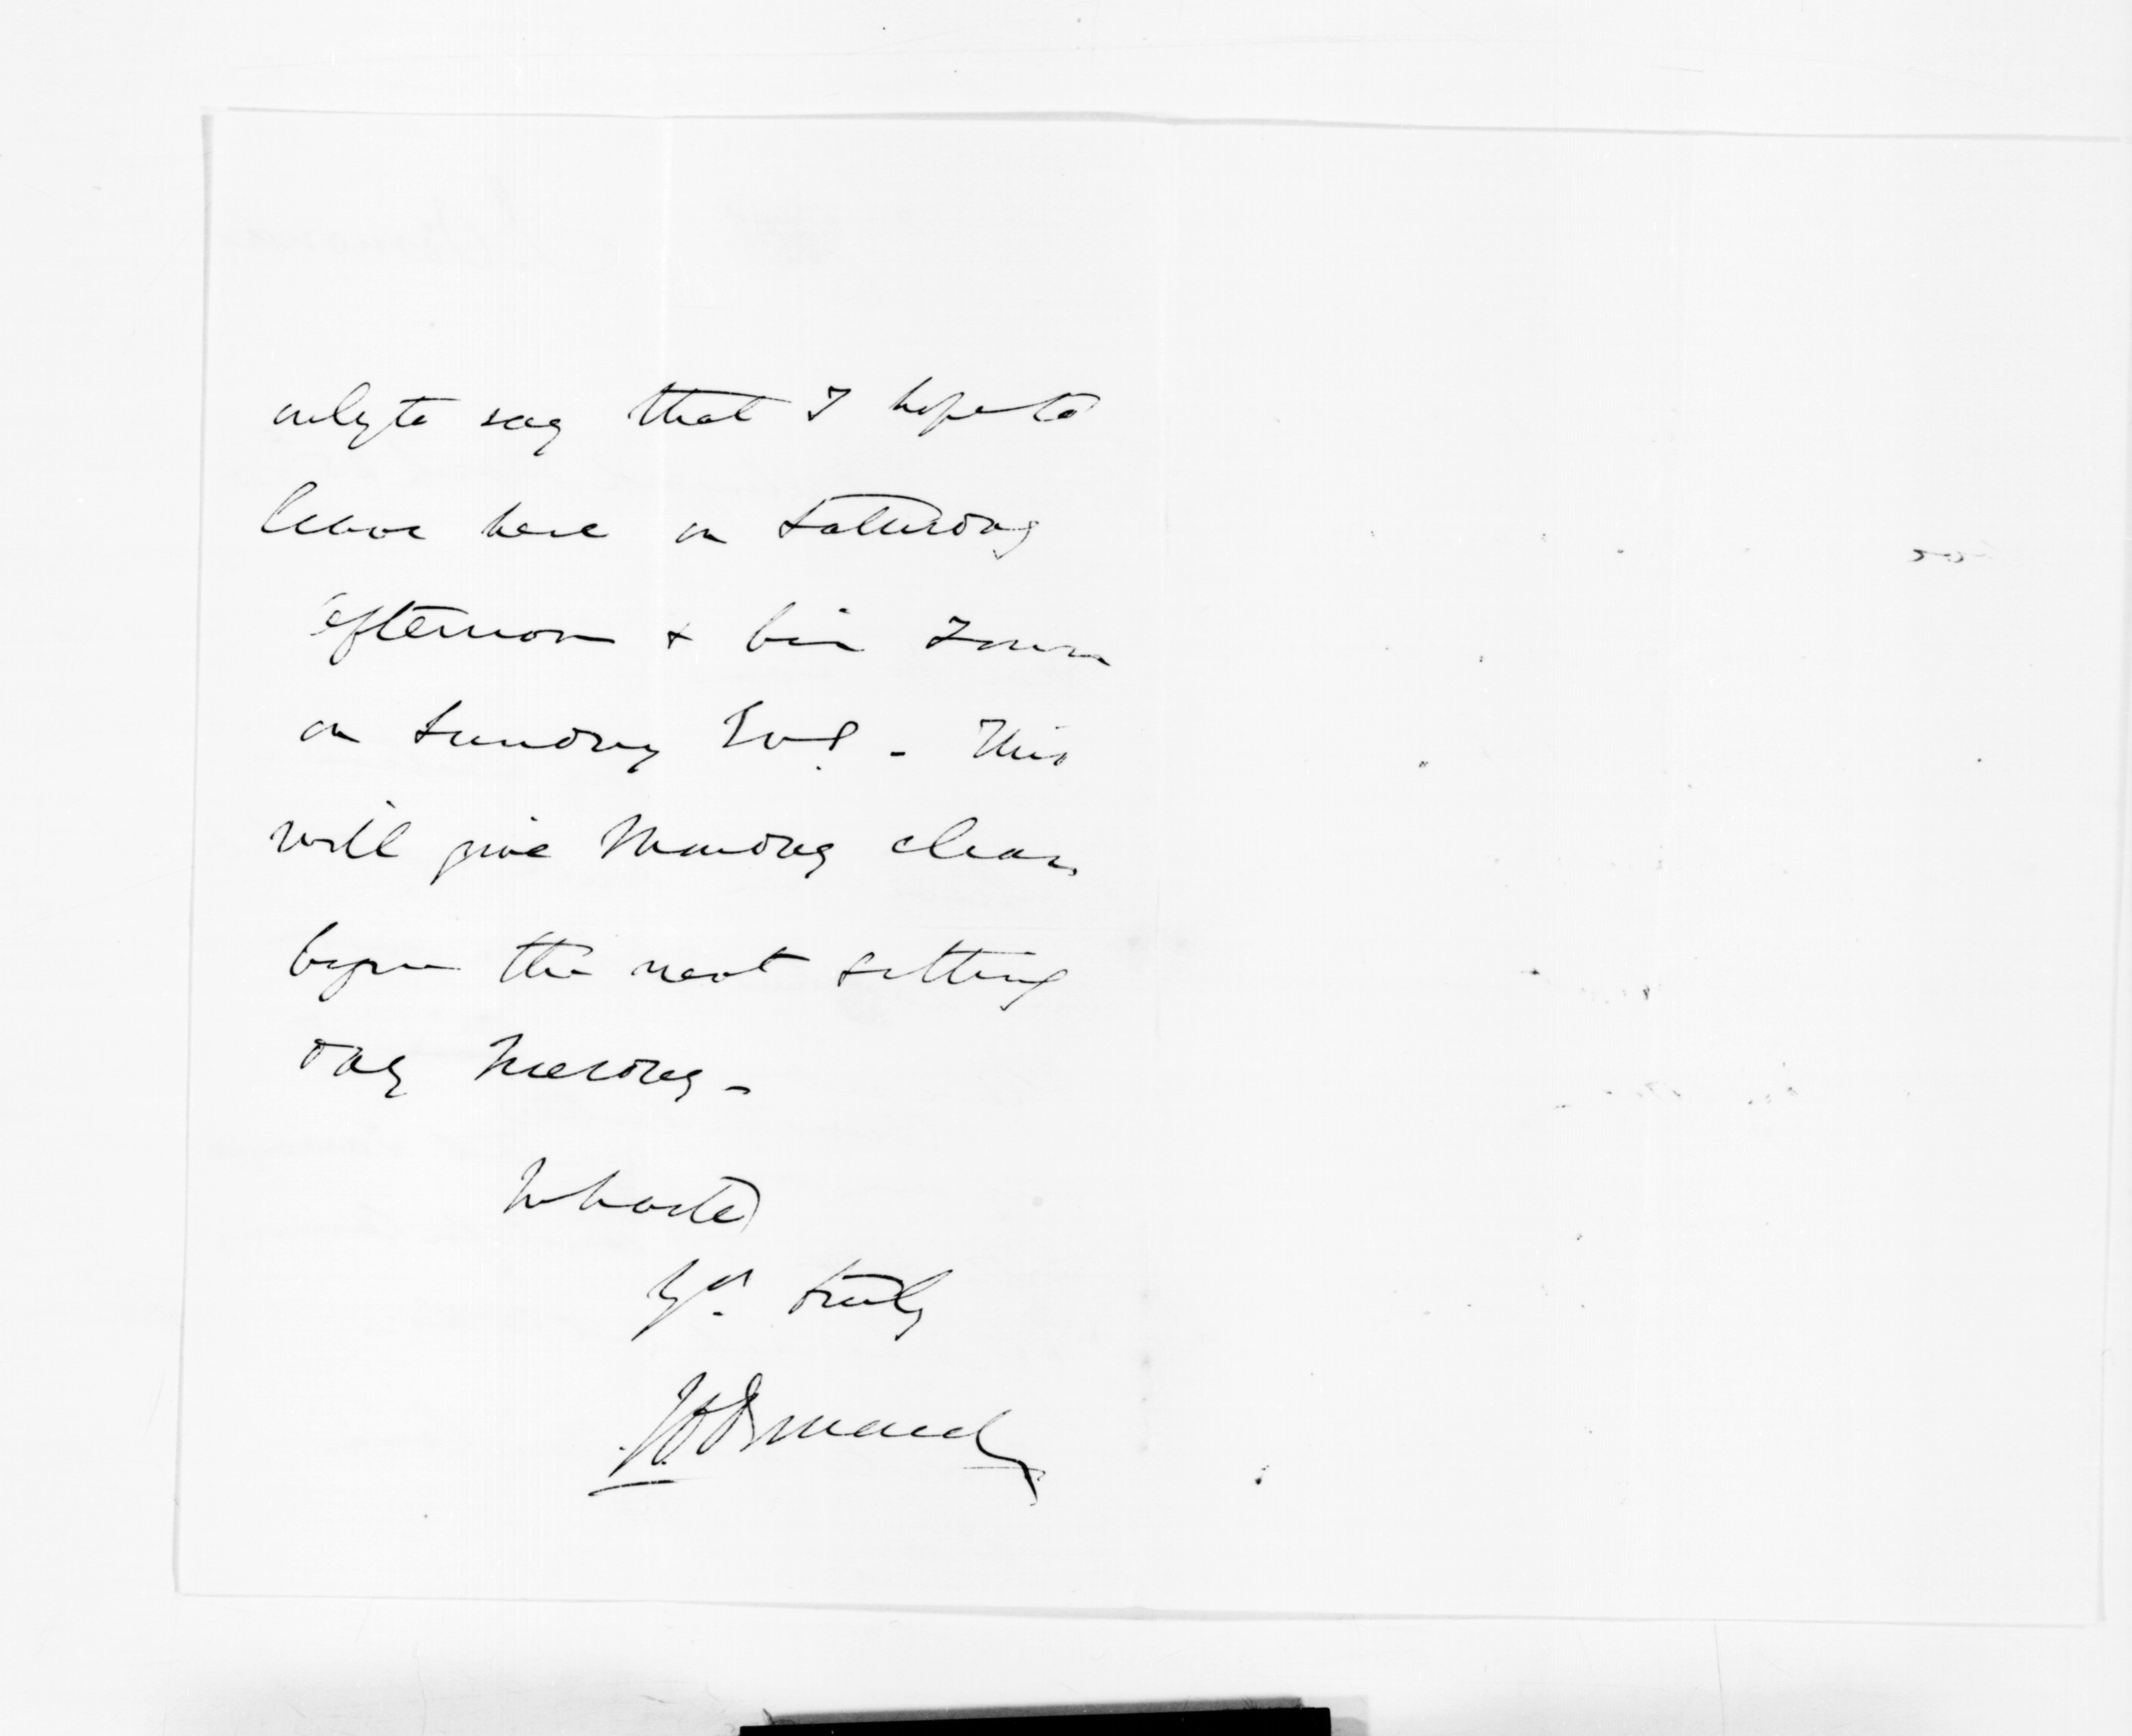 only to say that I hope to
leave here on Saturday
afternoon & be in Town
on Sunday Evg. - This
will give Monday clear
before the next sitting
day Tuesday -
In haste
Yrs truly
JDOrmond